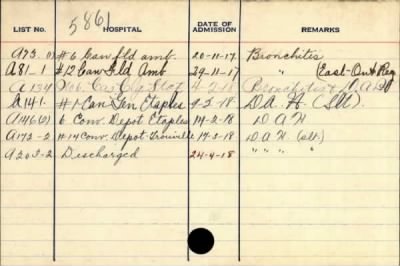 5861
LIST No. HOSPITAL DATE OF ADMISSION REMARKS
A73 #6 Can Fld amb. 20-11-17 Bronchitis
A81-1 #12 Can Fld Amb 29-11-17 " (East-Ont Reg
A134 4-2-18 Bronchitis
A141- #1 Can Gen Etaples 9-2-18 D.A.H. (Slt).
A146(2) 6 Conv. Depot Etaples 14-2-18 D A H
A172-2 #14 Conv. Depot Trouville 17-3-18 D A H (slt.)
A203-2 Discharged 24-4-18 " " " "